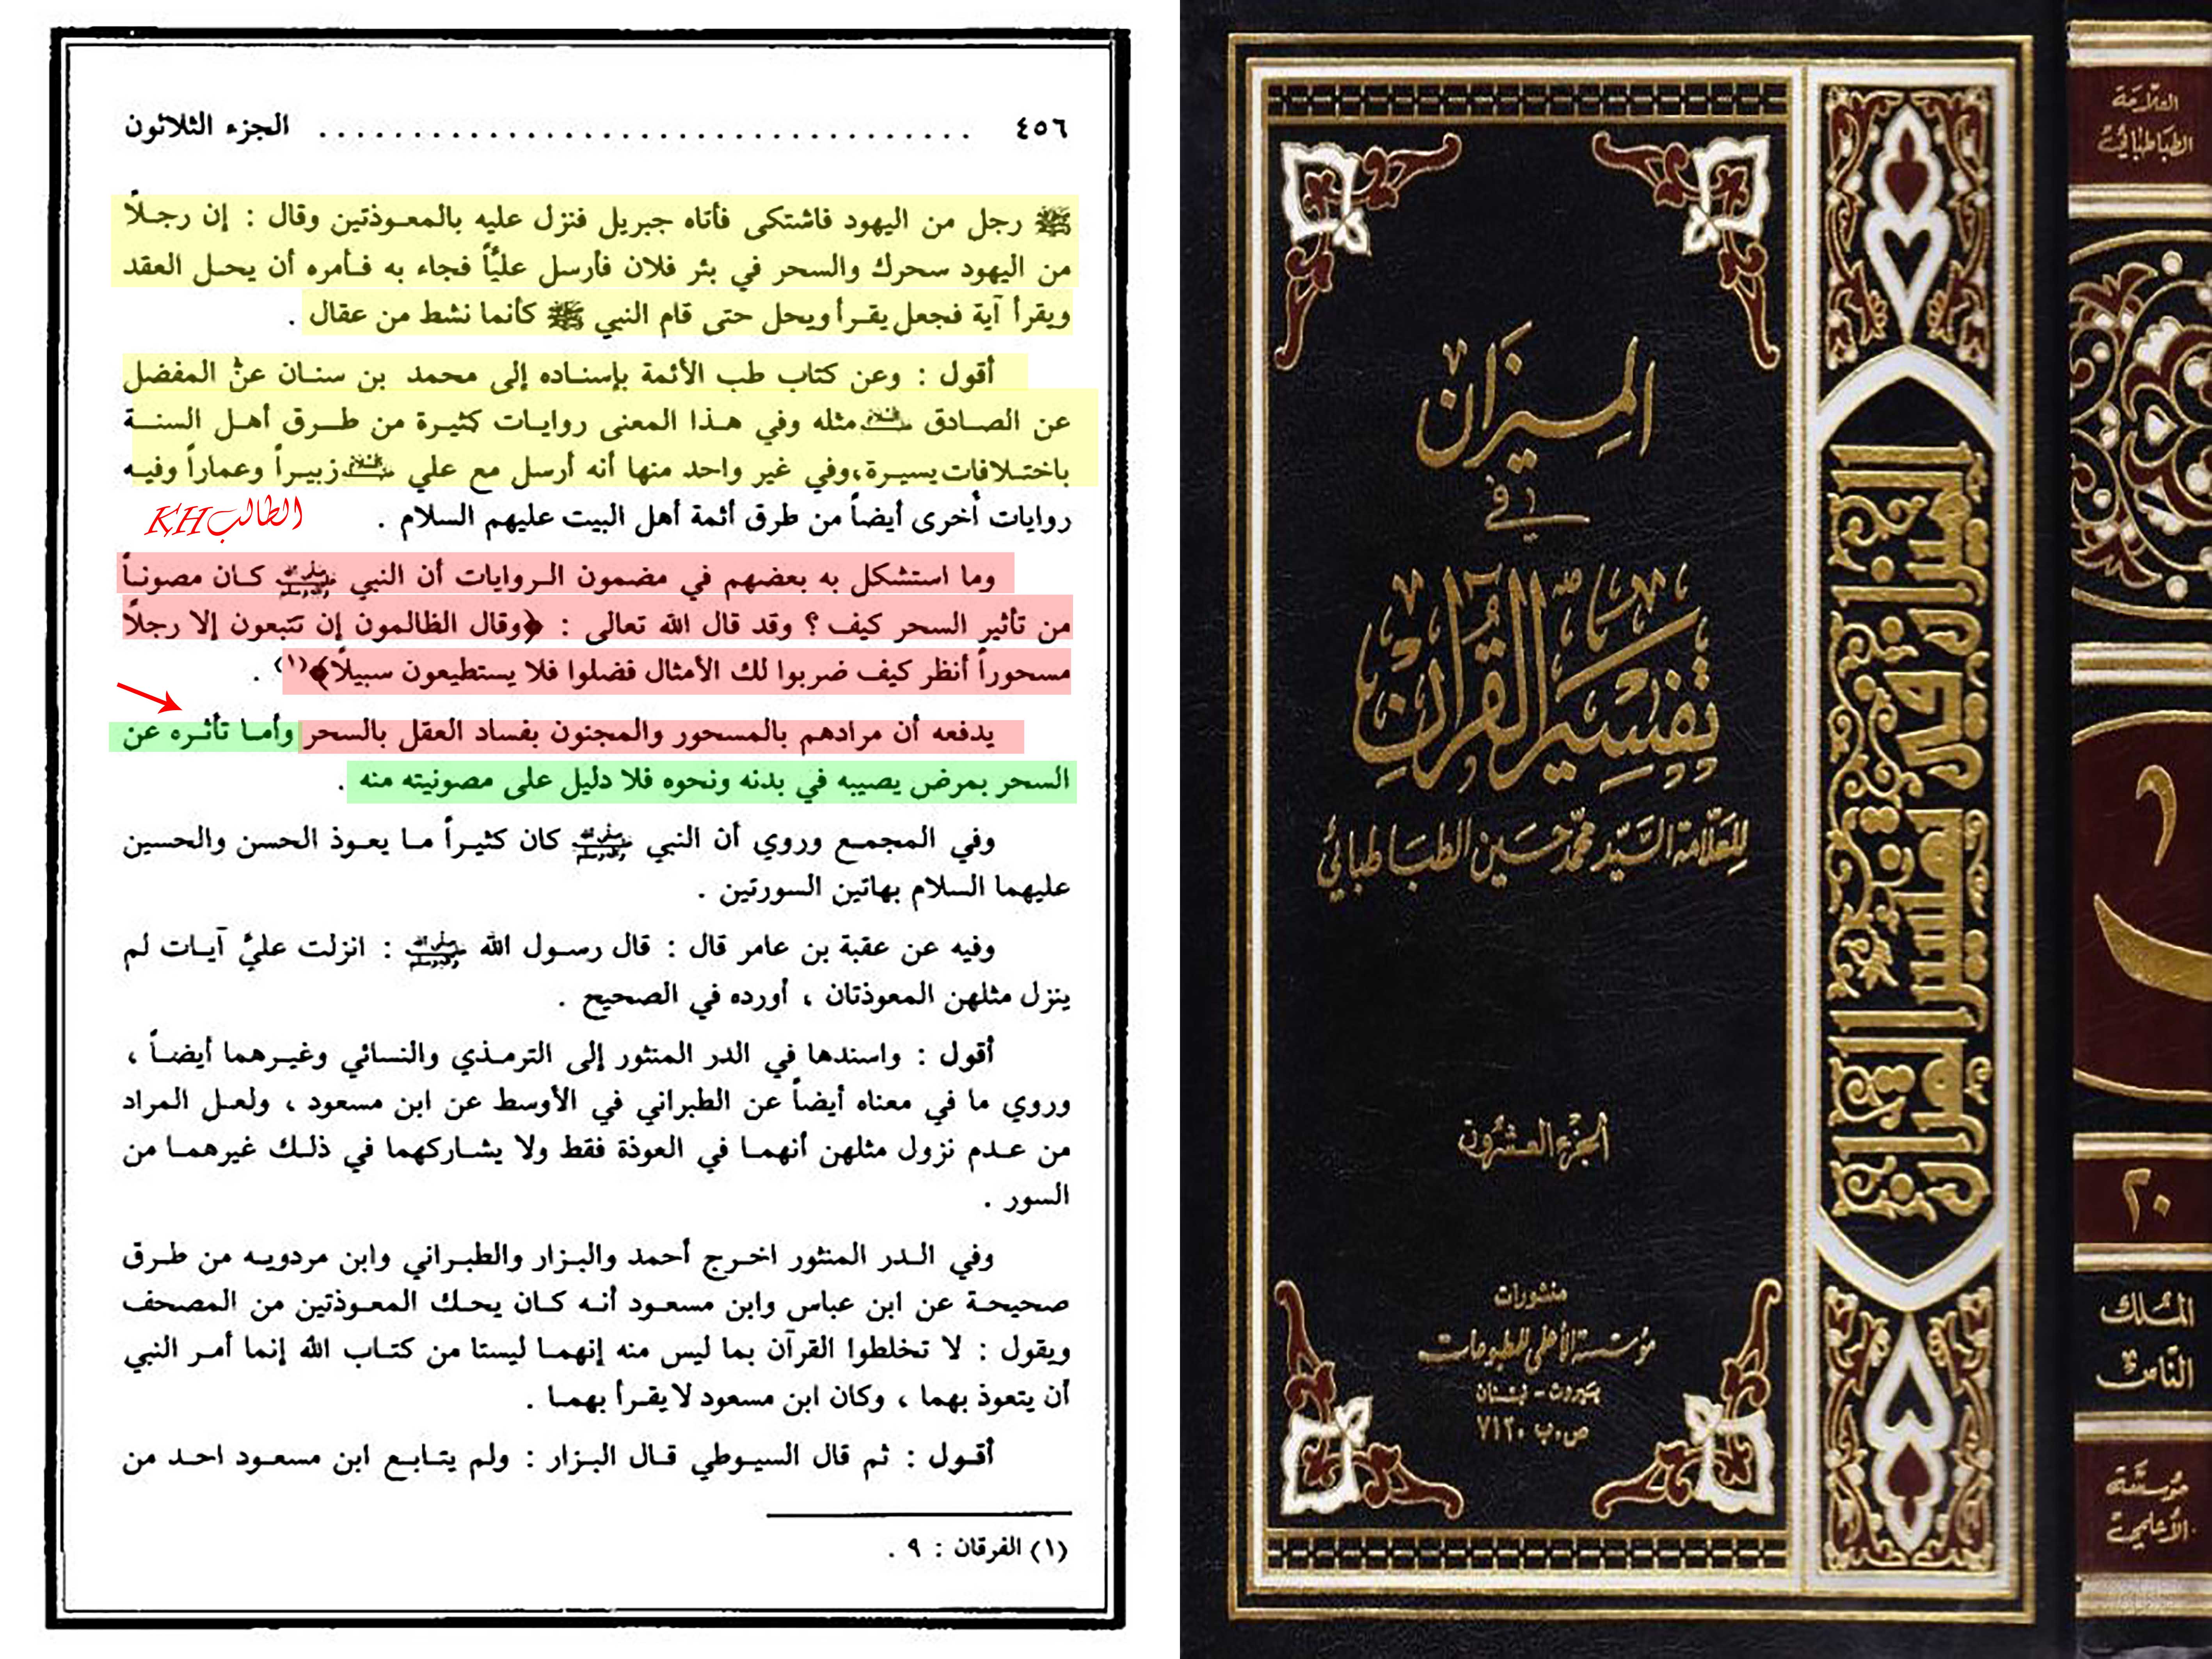 ٤٥٦ ..................................... الجزء الثلاثون
ﷺ رجل من اليهود فاشتكى فأتاه جبريل فنزل عليه بالمعـوذتين وقال : إن رجـلاً
من اليهود سحرك والسحر في بئر فلان فأرسل علياً فجاء به فـأمره أن يحـل العقد
ويقرأ آية فجعل يقـرأ ويحل حتى قام النبي ﷺ كأنما نشط من عقال .
أقول : وعن كتاب طب الأئمة بإسناده إلى محمد بن سنـان عن المفضل
عن الصـادق عليه السلام مثله وفي هـذا المعنى روايـات كثيـرة من طـرق أهـل السنـة
باختـلافات يسيـرة، وفي غير واحد منها أنه أرسل مع علي عليه السلام زبيـراً وعماراً وفيـه
روايات أُخرى أيضاً من طرق أئمة أهل البيت عليهم السلام .
الطالب KH
وما استشكل به بعضهم في مضمون الـروايات أن النبي ﷺ كـان مصونـاً
من تأثير السحر كيف ؟ وقد قال الله تعالى : ﴿وقال الظالمون إن تتبعون إلا رجلاً
مسحوراً أنظر كيف ضربوا لك الأمثال فضلوا فلا يستطيعون سبيلاً﴾(١) .
يدفعه أن مرادهم بالمسحور والمجنون بفساد العقل بالسحر وأمـا تأثـره عن
السحر بمرض يصيبه في بدنه ونحوه فلا دليل على مصونيته منه .
وفي المجمـع وروي أن النبي ﷺ كان كثيـراً مـا يعـوذ الحسن والحسين
عليهما السلام بهاتين السورتين .
وفيه عن عقبة بن عامر قال : قال رسـول الله ﷺ : انزلت عليّ آيـات لم
ينزل مثلهن المعوذتان ، أورده في الصحيح .
أقول : واسندها في الدر المنثور إلى الترمـذي والنسائي وغيـرهما أيضـاً ،
وروي ما في معناه أيضاً عن الطبراني في الأوسط عن ابن مسعود ، ولعـل المراد
من عـدم نزول مثلهن أنهمـا في العوذة فقط ولا يشـاركهما في ذلـك غيرهمـا من
السور .
وفي الـدر المنثور اخـرج أحمد والبـزار والطبـراني وابن مردويـه من طـرق
صحيحـة عن ابن عباس وابن مسعـود أنـه كـان يحـك المعـوذتين من المصحف
ويقول : لا تخلطوا القرآن بما ليس منه إنهمـا ليستا من كتـاب الله إنما أمـر النبي
أن يتعوذ بهما ، وكان ابن مسعود لا يقـرأ بهمـا .
أقـول : ثم قال السيـوطي قـال البـزار : ولم يتـابـع ابن مسعـود احـد من
(١) الفرقان : ٩ .
الميزان
في
تفسير القرآن
للعلامة السيد محمد حسين الطباطبائي
الجزء العشرون
منشورات
مؤسسة الأعلمي للمطبوعات
بيروت - لبنان
ص.ب ٧١٢٠
الميزان في تفسير القرآن
العلامة
الطباطبائي
٢٠
الملك
الناس
مؤسسة
الأعلمي